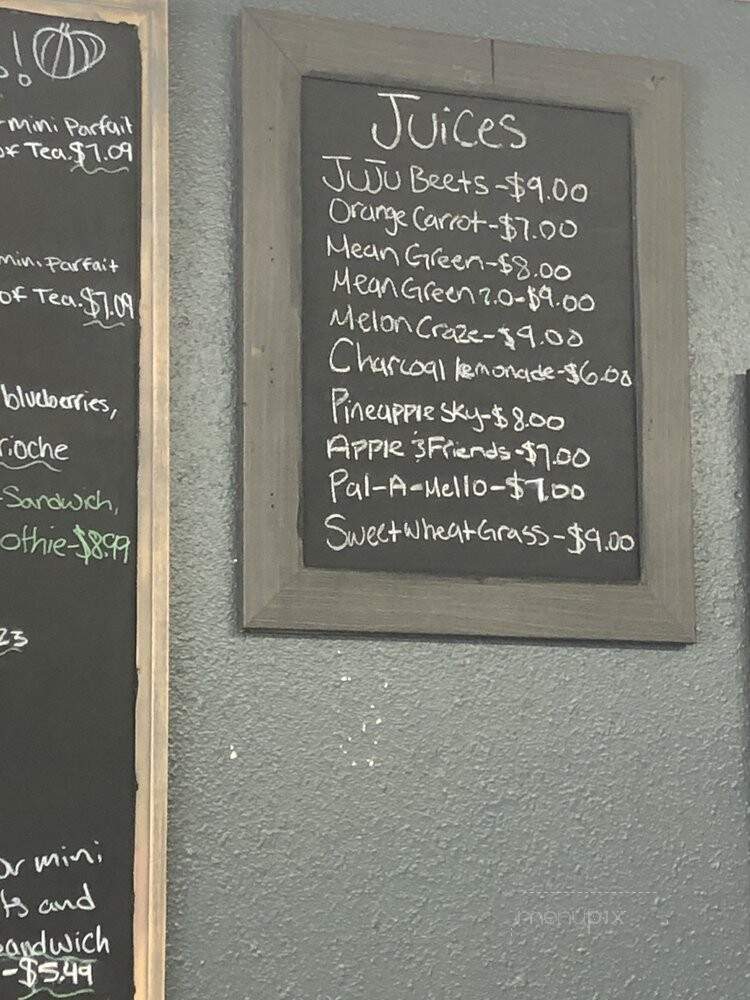 mini Parfait
of Tea.$7.09
mini Parfait
of Tea.$7.09
blueberries,
rioche
-Sandwich,
othie-$8.99
23
or mini
ts and
andwich
-$5.49
Juices
JuJu Beets-$9.00
Orange Carrot-$7.00
Mean Green-$8.00
Mean Green 2.0-$9.00
Melon Craze-$9.00
Charcoal lemonade-$6.00
Pineapple sky-$8.00
Apple & Friends-$7.00
Pal-A-Mello-$7.00
Sweet wheat Grass-$9.00
menupix